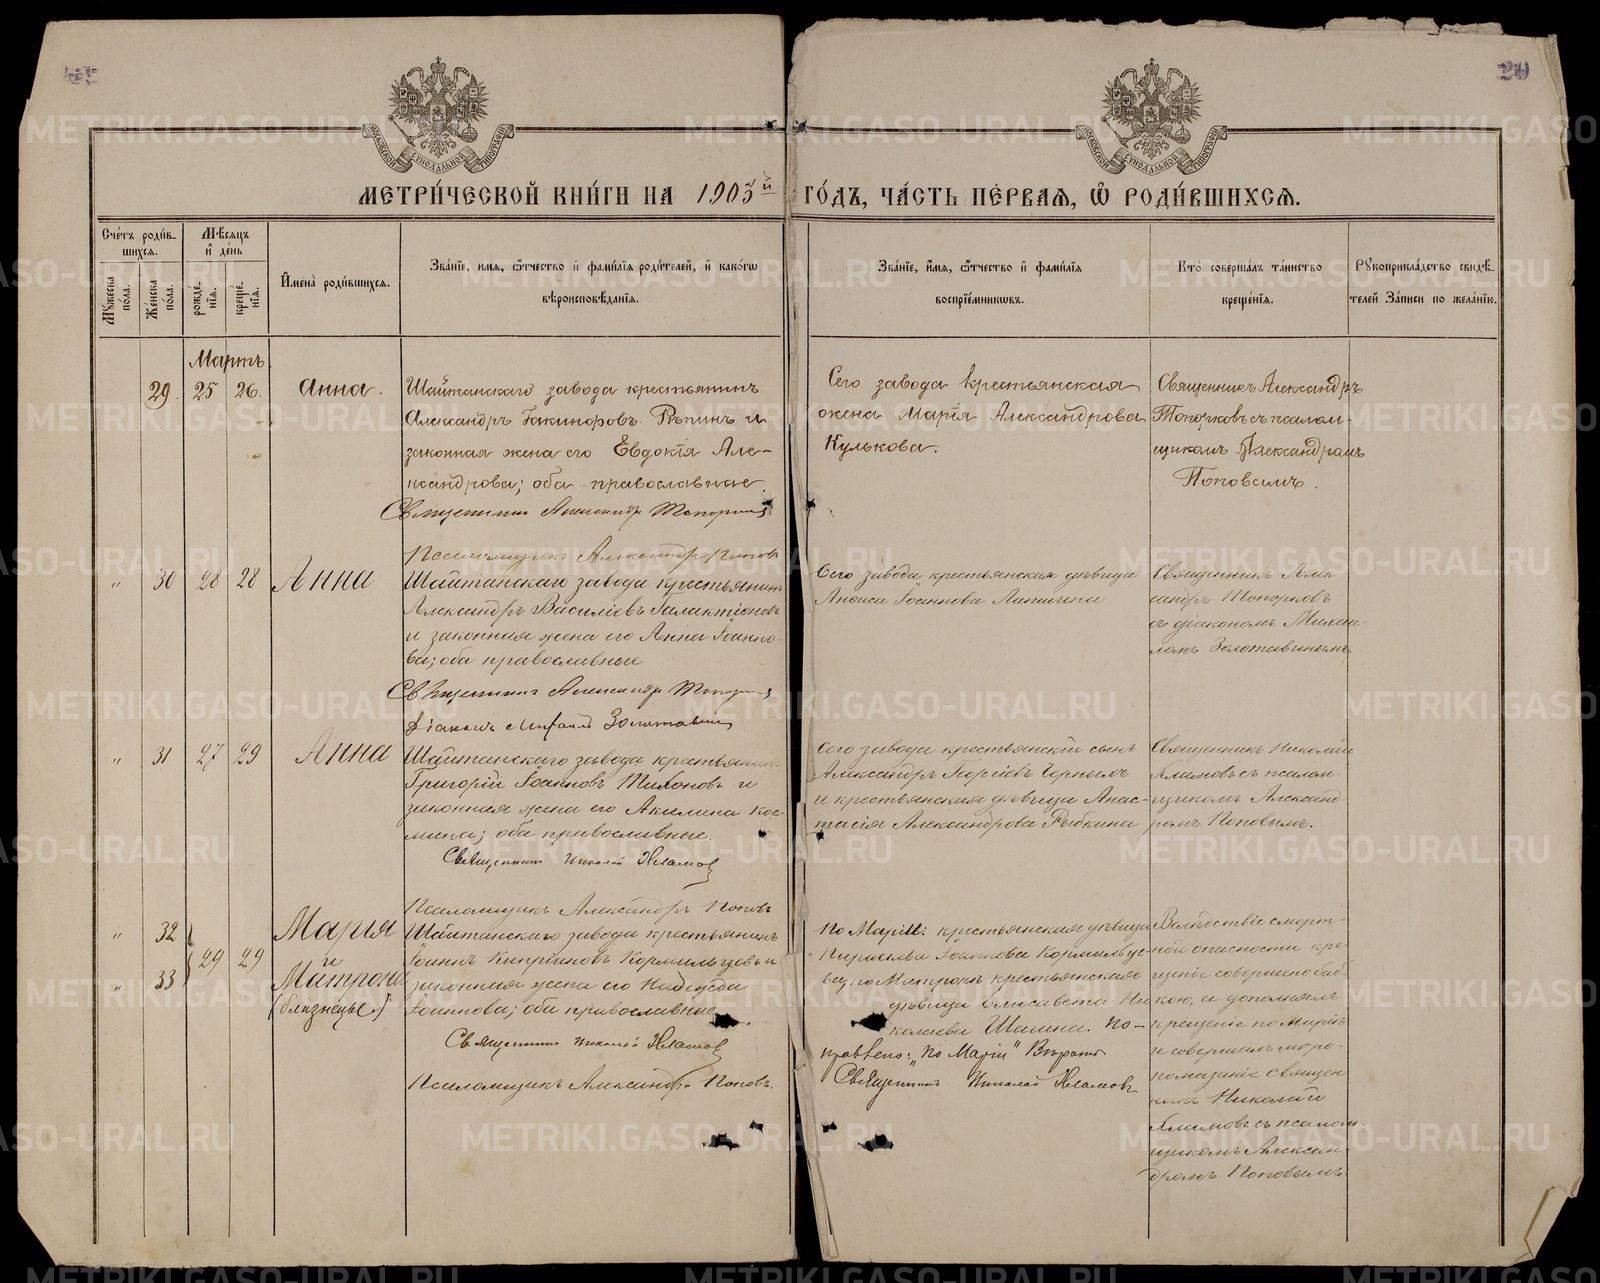 20
МОСКОВСКОЙ СѴНОДАЛЬНОЙ ТИПОГРАФІИ
МОСКОВСКОЙ СѴНОДАЛЬНОЙ ТИПОГРАФІИ
МЕТРИ́ЧЕСКОЙ КНИ́ГИ НА 1905й ГО́ДЪ, ЧА́СТЬ ПЕ́РВАЯ, Ѿ РОДИ́ВШИХСѦ.
Сче́тъ роди́в-
шихся.
Мѣсяцъ
и де́нь
Му́жеска по́ла.
Же́нска по́ла.
рожде́-нія.
креще́-нія.
И҆мена̀ роди́вшихся.
Зва́ніе, имя, ѻ҆́тчество и҆ фами́лія роди́телей, и҆ како́гѡ
вѣроисповѣ́данія.
Зва́ніе, и҆мя, ѻ҆́тчество и҆ фами́лія
воспріе́мниковъ.
Кто̀ соверша́лъ та́инство
креще́нія.
Рꙋкоприкла́дство свидѣ́-
телей За́писи по жела́нію.
Мартъ
29. 25 26. Анна.
Шайтанскаго завода крестьянинъ
Александръ Іакинфовъ Рѣпинъ и
законная жена его Евдокія Але-
ксандрова; оба православные.
Священникъ Александръ Топорковъ
Псаломщикъ Александръ Поповъ
Сего завода крестьянская
жена Марія Александрова
Кулькова.
Священникъ Александръ
Топорковъ съ псалом-
щикомъ Александромъ
Поповымъ.
" 30 28 28 Анна
Шайтанскаго завода крестьянинъ
Александръ Василіевъ Галактіоновъ
и законная жена его Анна Іоанно-
ва; оба православные
Священникъ Александръ Топорковъ
Діаконъ Михаилъ Золотавинъ
Сего завода крестьянская дѣвица
Іоаннова Лапшина
Священникъ Алек-
сандръ Топорковъ
съ діакономъ Михаи-
ломъ Золотавинымъ.
" 31 27 29 Анна
Шайтанскаго завода крестьянинъ
Григорій Іоанновъ Тихоновъ и
законная жена его Акилина Кос-
мина; оба православные.
Священникъ Николай
Псаломщикъ Александръ Поповъ
Сего завода крестьянскій сынъ
Александръ Георгіевъ Черныхъ
и крестьянская дѣвица Анас-
тасія Александрова Рыбкина
Священникъ Николай
съ псалом-
щикомъ Александ-
ромъ Поповымъ.
" 32 29 29 Марія
и
" 33 Матрона
(близнецы.)
Шайтанскаго завода крестьянинъ
Іоаннъ Кипріановъ Кормильцевъ и
законная жена его Надежда
Іоаннова; оба православные
Священникъ Николай
Псаломщикъ Александръ Поповъ.
По Маріи: крестьянская дѣвица
Іоаннова Кормильце-
ва; по Матронѣ крестьянская
дѣвица Елисавета Ни-
колаева Шалина. По-
правлено: "По Маріи" Вѣрно
Священникъ Николай
Вслѣдствіе смерт-
ной опасности кре-
щеніе совершено баб-
кою, а дополнялъ
крещеніе по Маріи
и совершалъ миро-
помазаніе Священ-
никъ Николай
съ псалом-
щикомъ Алексан-
дромъ Поповымъ.
METRIKI.GASO-URAL.RU